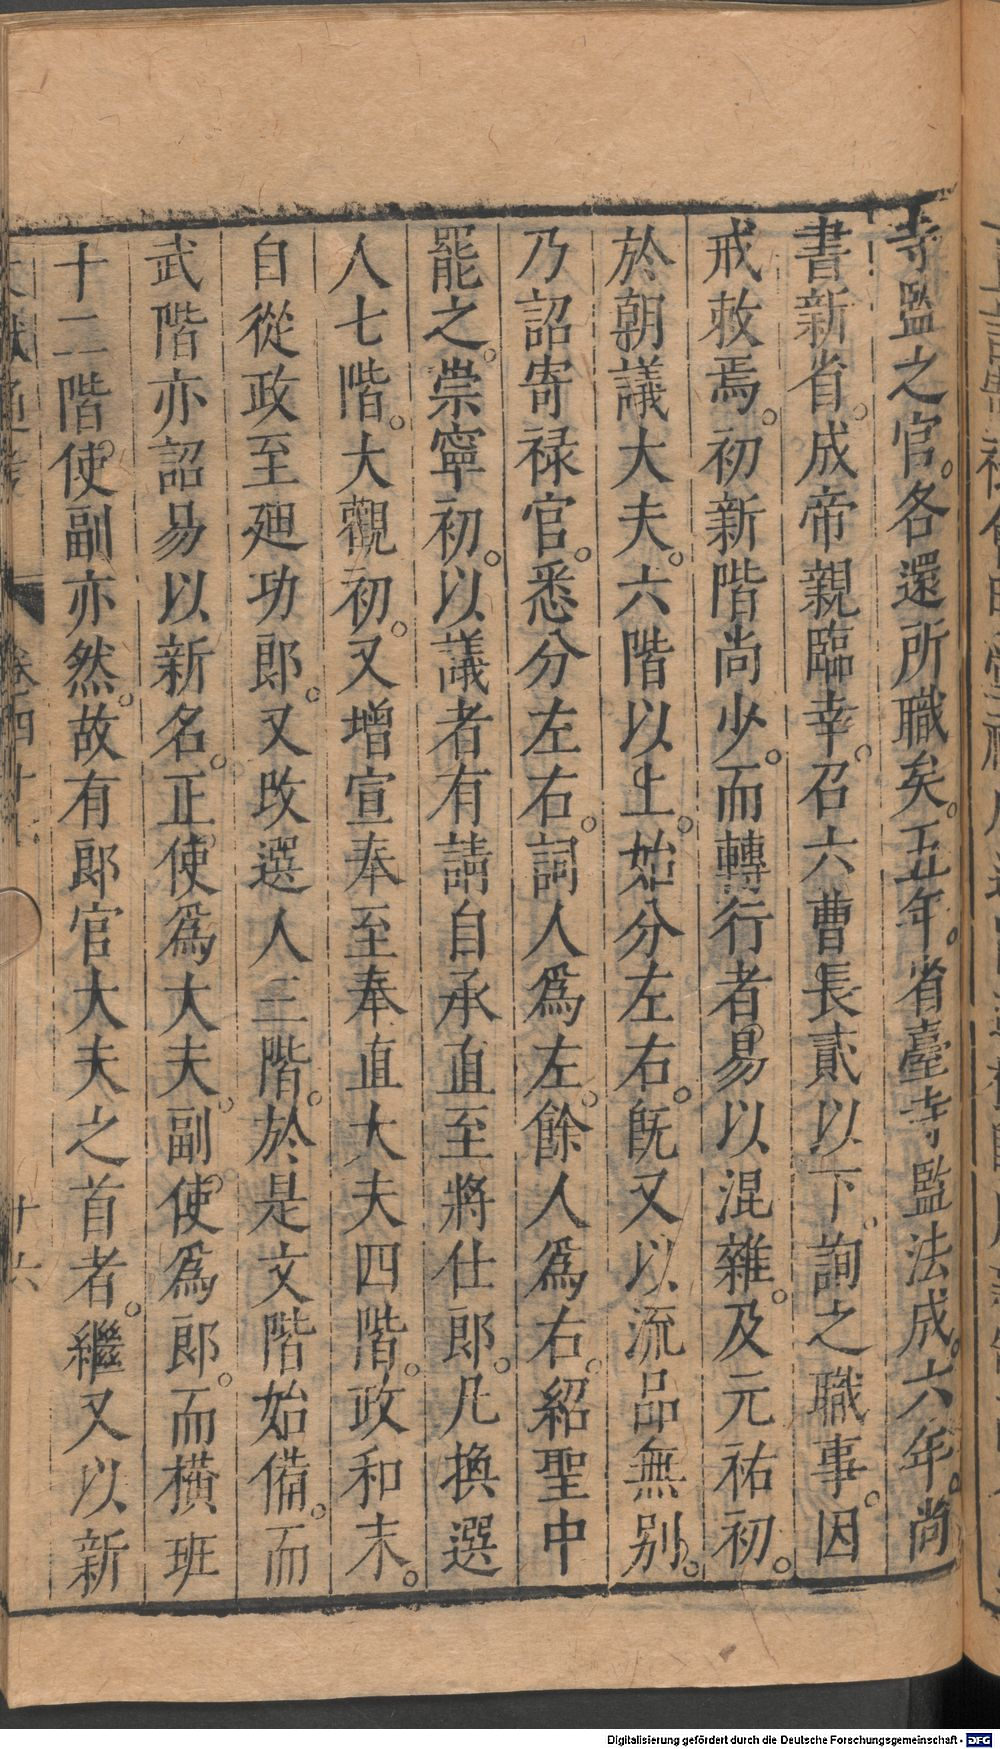 寺監之官。各還所職矣。五年。省臺寺監法成。六年。尚
書新省。成帝親臨幸。召六曹長貳以下。詢之職事。因
戒敕焉。初新階尚少。而轉行者易以混雜。及元祐初。
於朝議大夫。六階以上。始分左右。旣又以流品無別。
乃詔寄祿官。悉分左右。詞人爲左。餘人爲右。紹聖中
罷之。崇寧初。以議者有請自承直至將仕郎。凡換選
人七階。大觀初。又增宣奉至奉直大夫四階。政和末。
自從政至廸功郎。又改選人三階。於是文階始備。而
武階亦詔易以新名。正使爲大夫。副使爲郎。而橫班
十二階使副亦然。故有郎官大夫之首者。繼又以新
卷四十
十六
Digitalisierung gefördert durch die Deutsche Forschungsgemeinschaft - DFG